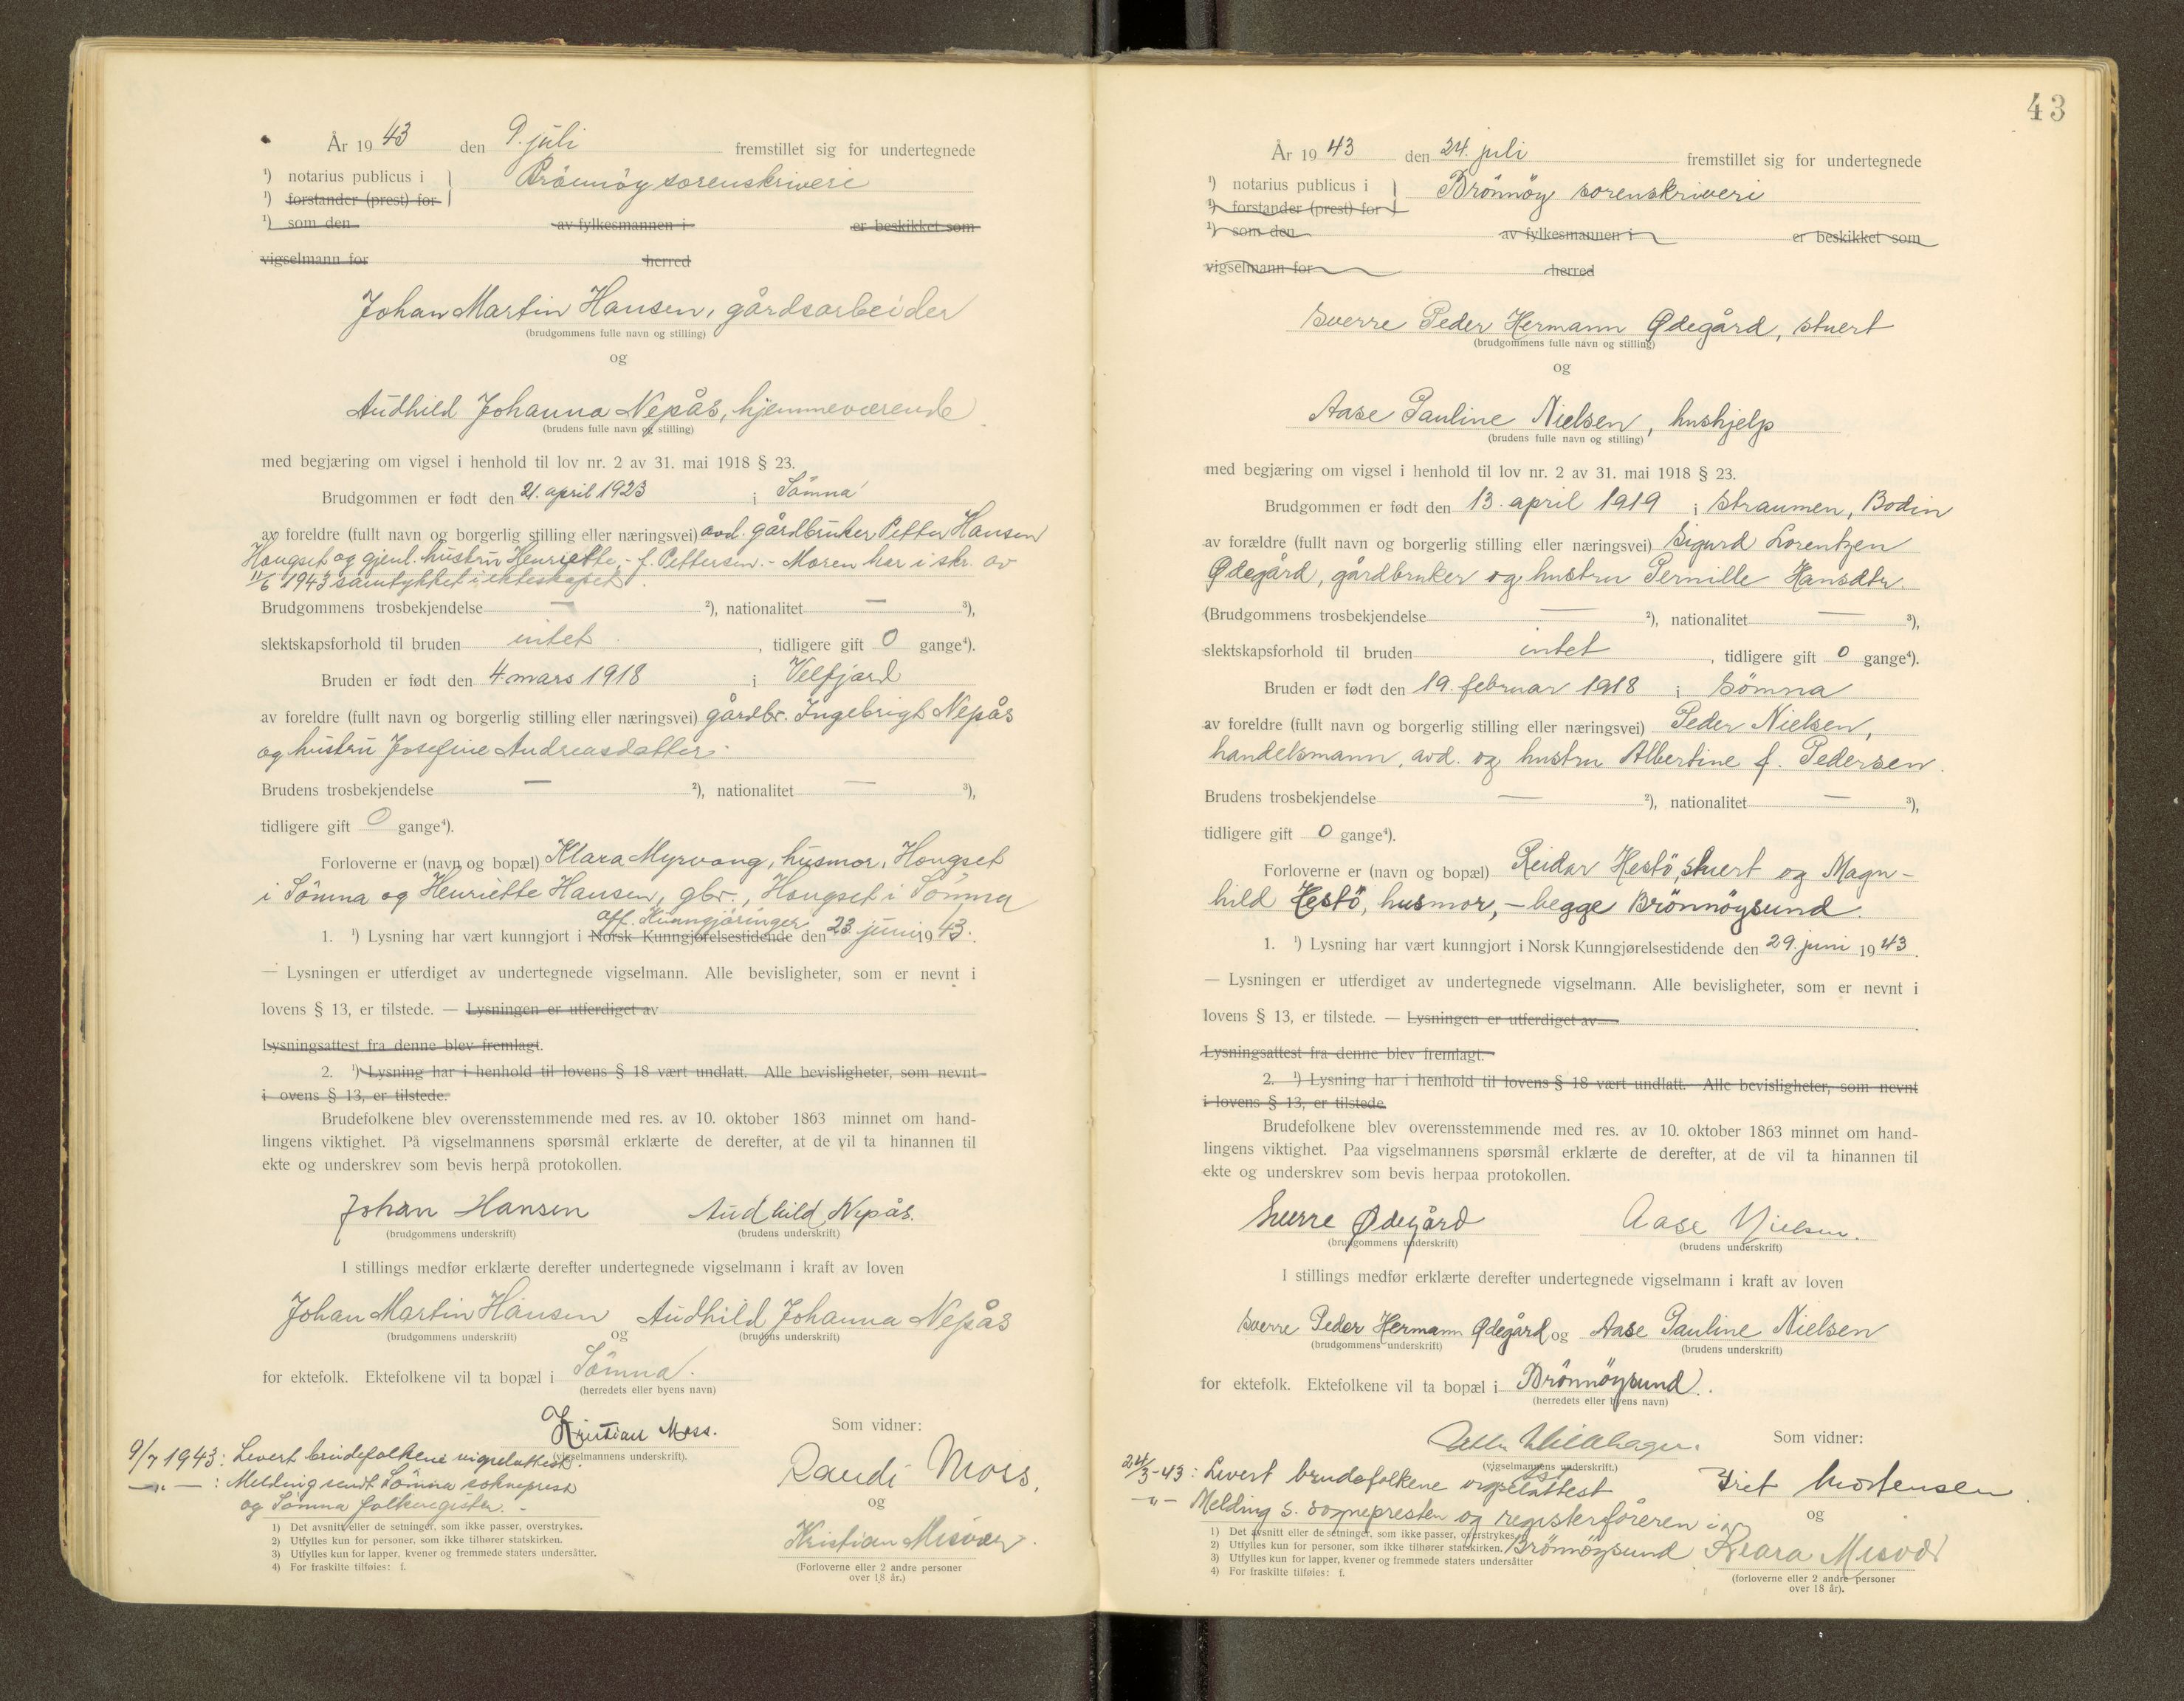 År 1943 den 9. juli fremstillet sig for undertegnede
¹) notarius publicus i } Brönnöy sorenskriveri
¹) forstander (prest) for
¹) som den av fylkesmannen i er beskikket som
vigselmann for herred
Johan Martin Hansen, gårdsarbeider
(brudgommens fulle navn og stilling)
og
Audhild Johanna Nepås, hjemmeværende
(brudens fulle navn og stilling)
med begjæring om vigsel i henhold til lov nr. 2 av 31. mai 1918 § 23.
Brudgommen er født den 21. april 1923 i Sömna
av foreldre (fullt navn og borgerlig stilling eller næringsvei) avd. gårdbruker Petter Hansen
Hongset og gjenl. hustru Henriette, - f. Pettersen. - Moren har i skr. av
11/6 1943 samtykket i ekteskapet.
Brudgommens trosbekjendelse — ²), nationalitet — ³),
slektskapsforhold til bruden intet, tidligere gift 0 gange⁴).
Bruden er født den 4. mars 1918 i Velfjord
av foreldre (fullt navn og borgerlig stilling eller næringsvei) gårdbr. Ingebrigt Nepås
og hustru Josefine Andreasdatter.
Brudens trosbekjendelse — ²), nationalitet — ³),
tidligere gift 0 gange⁴).
Forloverne er (navn og bopæl) Klara Myrvang, husmor, Hongset
i Sömna og Henriette Hansen, gbr., Hongset i Sömna
off. Kunngjöringer
1. ¹) Lysning har vært kunngjort i Norsk Kunngjørelsestidende den 23. juni 1943.
— Lysningen er utferdiget av undertegnede vigselmann. Alle bevisligheter, som er nevnt i
lovens § 13, er tilstede. — Lysningen er utferdiget av
Lysningsattest fra denne blev fremlagt.
2. ¹) Lysning har i henhold til lovens § 18 vært undlatt. Alle bevisligheter, som nevnt
i ovens § 13, er tilstede.
Brudefolkene blev overensstemmende med res. av 10. oktober 1863 minnet om hand-
lingens viktighet. På vigselmannens spørsmål erklærte de derefter, at de vil ta hinannen til
ekte og underskrev som bevis herpå protokollen.
Johan Hansen Audhild Nepås.
(brudgommens underskrift) (brudens underskrift)
I stillings medfør erklærte derefter undertegnede vigselmann i kraft av loven
Johan Martin Hansen og Audhild Johanna Nepås
(brudgommens underskrift) (brudens underskrift)
for ektefolk. Ektefolkene vil ta bopæl i Sömna.
(herredets eller byens navn)
Kristian Moss.
(vigselmannens underskrift).
Som vidner:
Randi Moss.
og
Kristian Misvær.
(Forloverne eller 2 andre personer
over 18 år.)
9/7 1943: Levert brudefolkene vigselattest.
—"— : Melding sendt Sömna sokneprest
og Sömna folkeregister. -
1) Det avsnitt eller de setninger, som ikke passer, overstrykes.
2) Utfylles kun for personer, som ikke tilhører statskirken.
3) Utfylles kun for lapper, kvener og fremmede staters undersåtter.
4) For fraskilte tilføies: f.
43
År 1943 den 24. juli fremstillet sig for undertegnede
¹) notarius publicus i } Brönnöy sorenskriveri
¹) forstander (prest) for
¹) som den av fylkesmannen i er beskikket som
vigselmann for herred
Sverre Peder Hermann Ødegård, stuert
(brudgommens fulle navn og stilling)
og
Aase Pauline Nielsen, hushjelp
(brudens fulle navn og stilling)
med begjæring om vigsel i henhold til lov nr. 2 av 31. mai 1918 § 23.
Brudgommen er født den 13. april 1919 i Straumen, Bodin
av forældre (fullt navn og borgerlig stilling eller næringsvei) Sigurd Lorentzen
Ødegård, gårdbruker og hustru Pernille Hansdtr.
(Brudgommens trosbekjendelse — ²), nationalitet — ³),
slektskapsforhold til bruden intet, tidligere gift 0 gange⁴).
Bruden er født den 19. februar 1918 i Sömna
av foreldre (fullt navn og borgerlig stilling eller næringsvei) Peder Nielsen,
handelsmann, avd. og hustru Albertine f. Pedersen.
Brudens trosbekjendelse — ²), nationalitet — ³),
tidligere gift 0 gange⁴).
Forloverne er (navn og bopæl) Reidar Hestö, stuert og Magn-
hild Hestö, husmor, - begge Brönnöysund.
1. ¹) Lysning har vært kunngjort i Norsk Kunngjørelsestidende den 29. juni 1943.
— Lysningen er utferdiget av undertegnede vigselmann. Alle bevisligheter, som er nevnt i
lovens § 13, er tilstede. — Lysningen er utferdiget av
Lysningsattest fra denne blev fremlagt.
2. ¹) Lysning har i henhold til lovens § 18 vært undlatt. Alle bevisligheter, som nevnt
i lovens § 13, er tilstede
Brudefolkene blev overensstemmende med res. av 10. oktober 1863 minnet om hand-
lingens viktighet. Paa vigselmannens spørsmål erklærte de derefter, at de vil ta hinannen til
ekte og underskrev som bevis herpaa protokollen.
Sverre Ødegård Aase Nielsen.
(brudgommens underskrift) (brudens underskrift)
I stillings medfør erklærte derefter undertegnede vigselmann i kraft av loven
Sverre Peder Hermann Ødegård og Aase Pauline Nielsen
(brudgommens underskrift) (brudens underskrift)
for ektefolk. Ektefolkene vil ta bopæl i Brönnöysund.
(herredets eller byens navn)
(vigselmannens underskrift.)
Som vidner:
Mortensen
og
Klara Misvær
(forloverne eller 2 andre personer
over 18 år).
24/3-43: Levert brudefolkene vigselattest
—"— Melding s. sognepresten og registerföreren i
Brönnöysund
1) Det avsnitt eller de setninger, som ikke passer, overstrykes.
2) Utfylles kun for personer, som ikke tilhører statskirken.
3) Utfylles kun for lapper, kvener og fremmede staters undersåtter
4) For fraskilte tilføies: f.